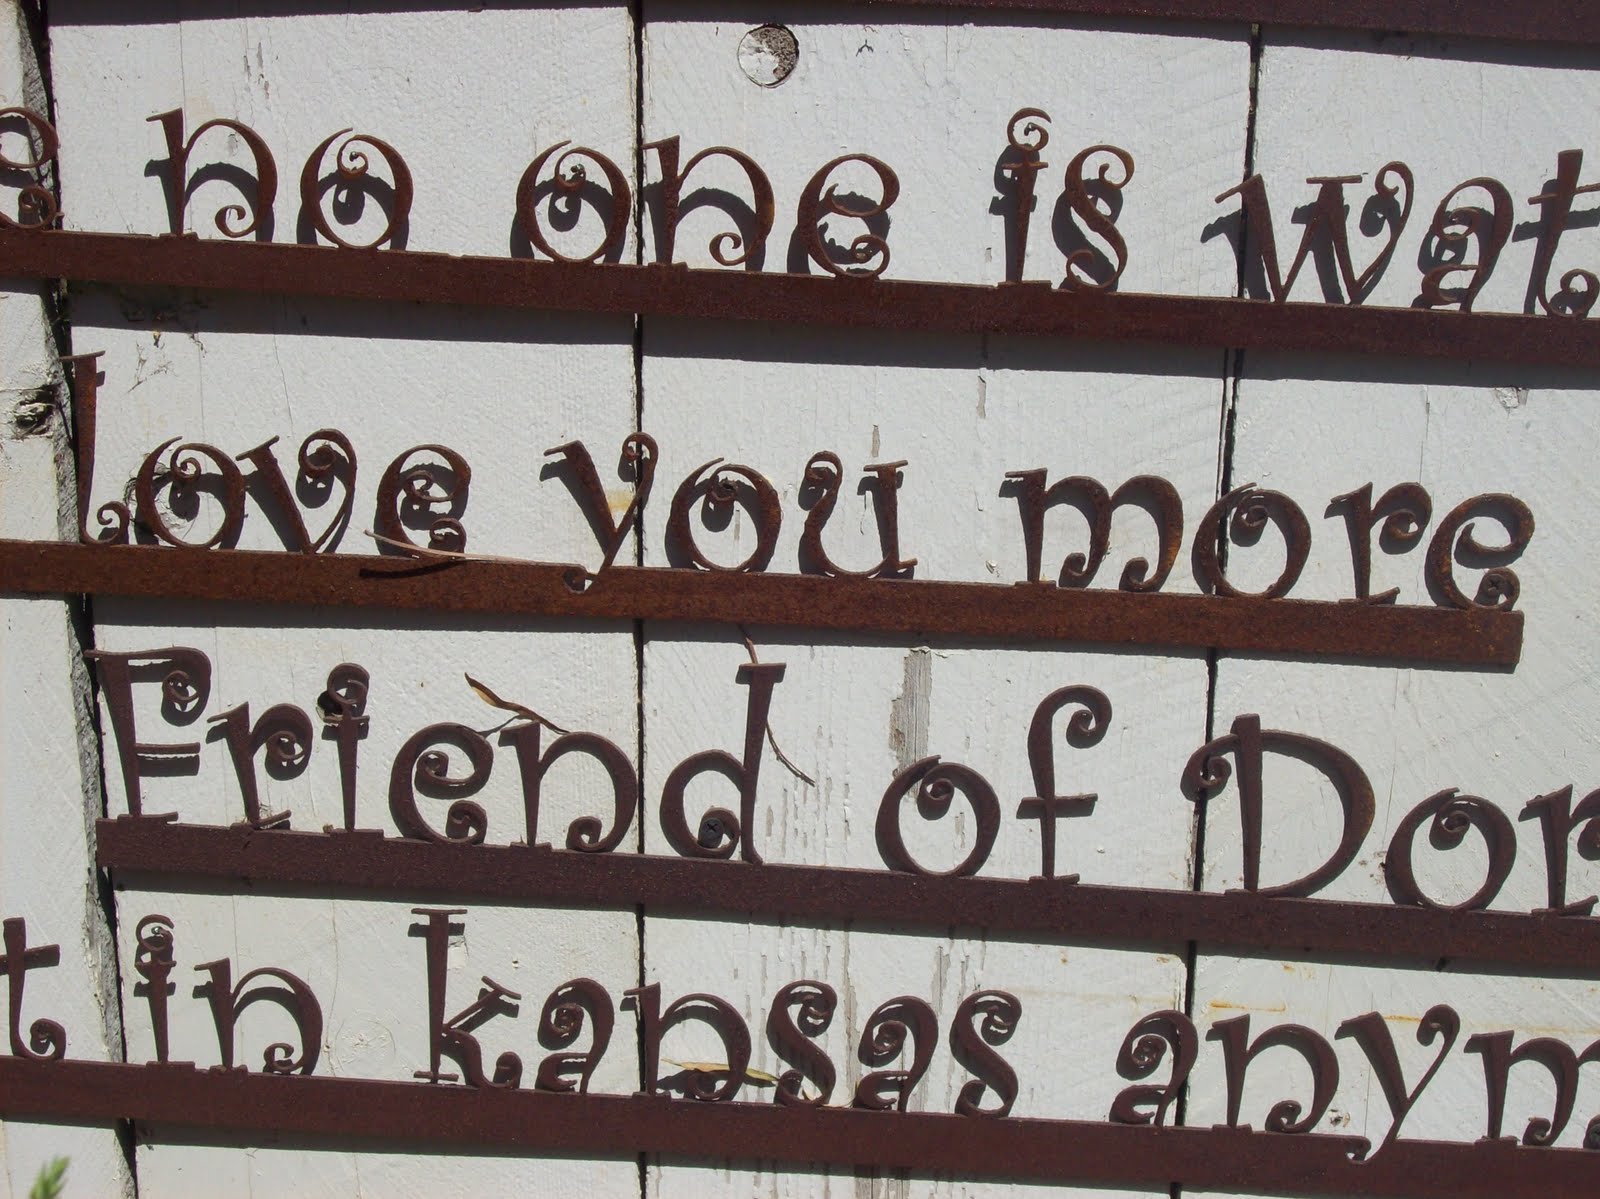 e no one is wat
Love you more
Friend of Dor
t in kansas anym